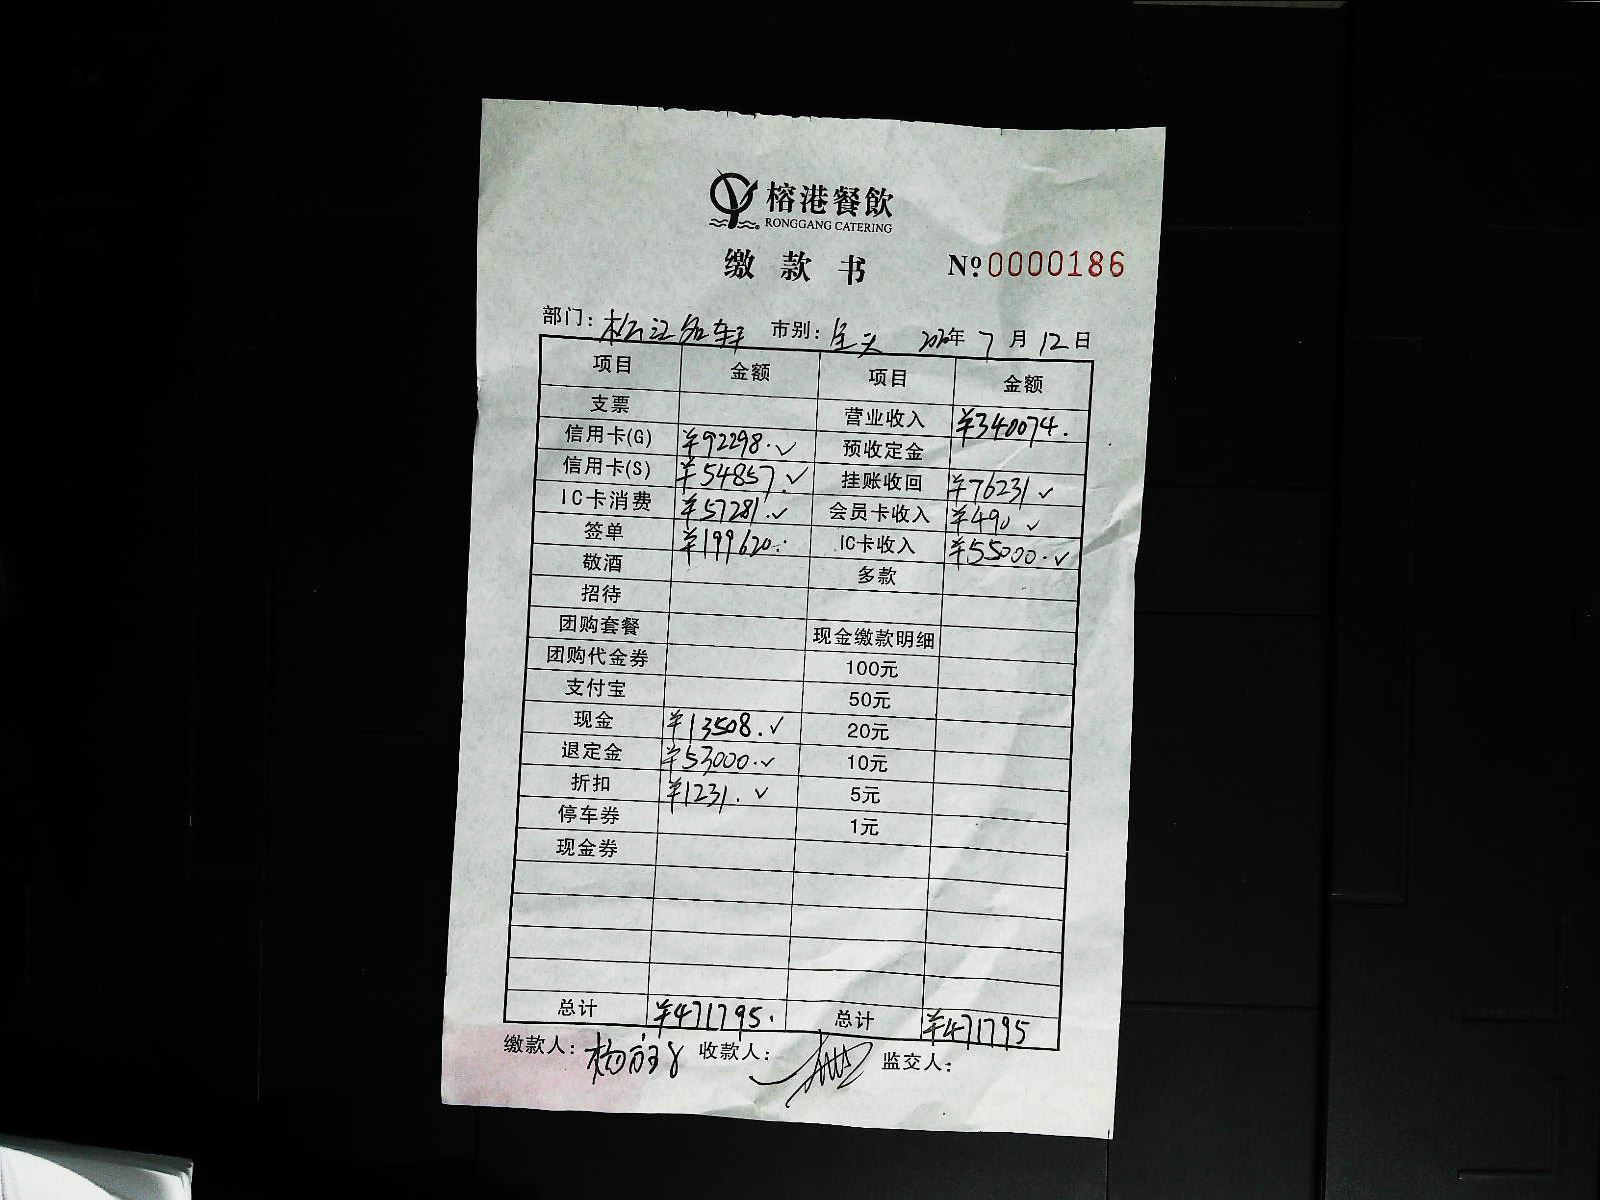 榕港餐飲
RONGGANG CATERING
缴款书 №0000186
部门: 松江名轩 市别: 全天 2020年 7月12日
项目 金额 项目 金额
支票 营业收入 ¥340074.
信用卡(G) ¥92298. ✓ 预收定金
信用卡(S) ¥54857. ✓ 挂账收回 ¥76231 ✓
IC卡消费 ¥57281. ✓ 会员卡收入 ¥490 ✓
签单 ¥199620. IC卡收入 ¥55000. ✓
敬酒 多款
招待
团购套餐 现金缴款明细
团购代金券 100元
支付宝 50元
现金 ¥13508. ✓ 20元
退定金 ¥53000. ✓ 10元
折扣 ¥1231. ✓ 5元
停车券 1元
现金券
总计 ¥471795. 总计 ¥471795
缴款人: 杨 收款人: 监交人: